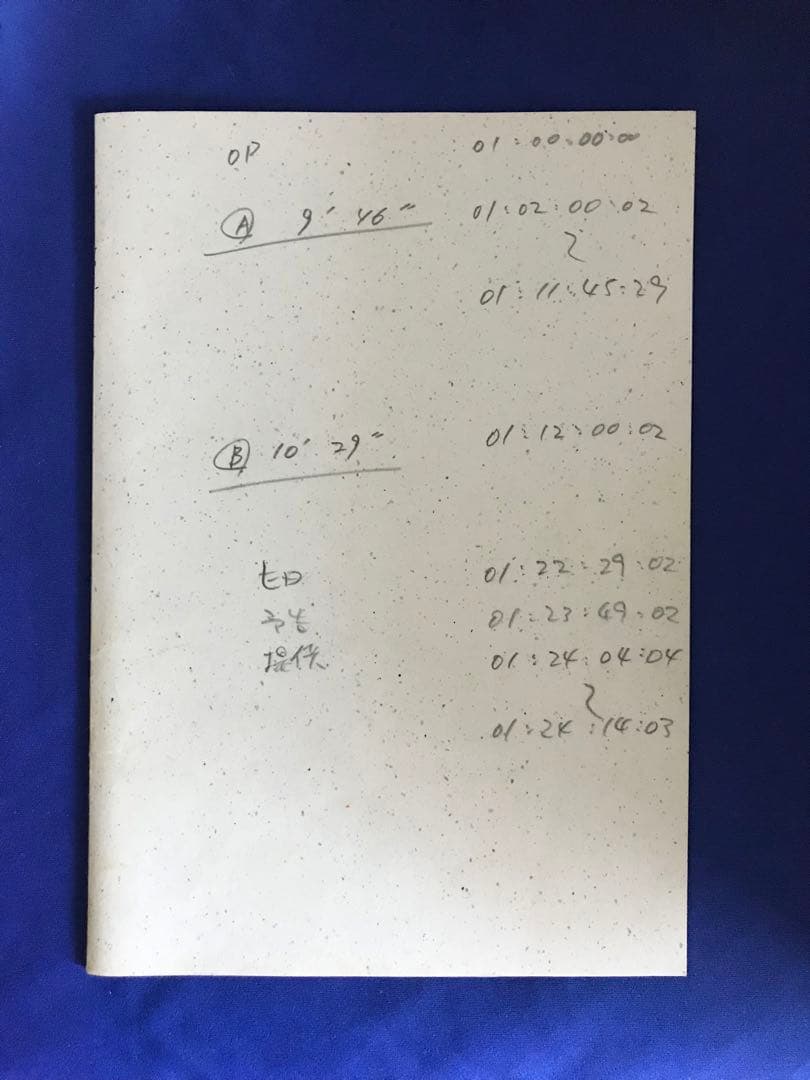 OP 01:00:00:00
Ⓐ 9′ 46″ 01:02:00:02
〜
01:11:45:29
Ⓑ 10′ 29″ 01:12:00:02
ヒロ 01:22:29:02
予告 01:23:49:02
提供 01:24:04:04
〜
01:24:14:03